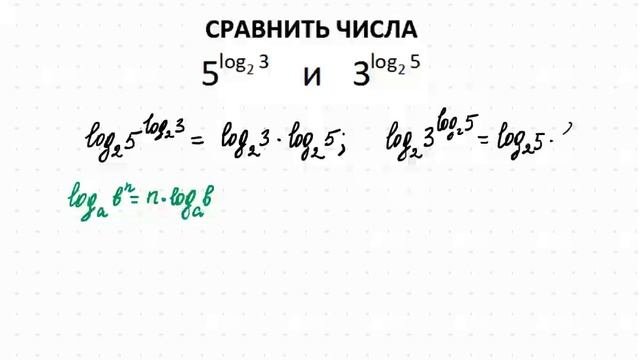 СРАВНИТЬ ЧИСЛА
5^{log₂ 3} и 3^{log₂ 5}
log₂5^{log₂3} = log₂3 · log₂5; log₂3^{log₂5} = log₂5 ·
logₐ bⁿ = n · logₐ b